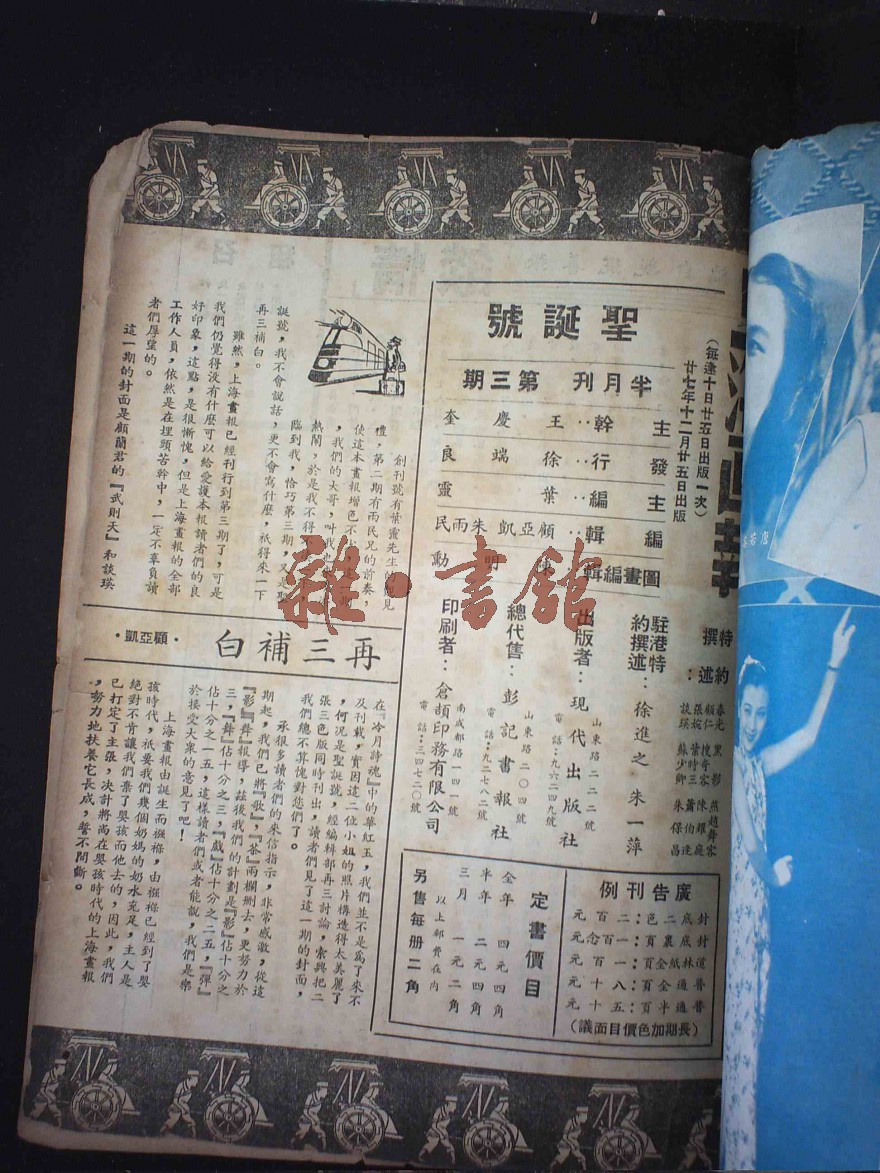 聖誕號
半月刊 第三期
(每逢十日廿五日出版一次)
廿七年十二月廿五日出版
主幹‥王慶奎
發行‥徐端良
主編‥葉靈
編輯 顧亞凱 朱雨民
圖畫編輯 明勳
特約撰述：
春光 黑影 燕趙舞客
顧仁
張婉 葉時三
談瑛 蘇少卿 朱保昌
駐港特約撰述：徐進之 朱一萍
出版者：現代出版社
山東路二二二號
電話：九六二四九號
總代售：彭記書報社
山東路二〇四號
電話：九二七八二號
印刷者：倉頡印務有限公司
南成都路一四一號
電話：三四七二〇號
廣告刊例
封底二色 二百元
封底裏頁 一百念元
道林紙全頁 一百元
普通全頁 八十元
普通半頁 五十元
(長期加色價目面議)
定書價目
全年 四元四角
半年 二元四角
三月 一元二角
以上郵費在內
另售每册二角
再三補白
·顧亞凱·
創刊號有葉靈先生的
禮，第二期有雨民兄的前奏，
使這本畫報增色不
，我們的大哥，叫我
熱鬧，於是我不得
臨到我，恰巧第三期，又是聖
誕號，我不會說話，更不會寫什麼，祇得來一下
再三補白。
雖然，上海畫報已經刊行到第三期了，可是
我們仍覺得没有什麼可以給愛護本報讀者們的良
好印象，這點，是很慚愧，但是上海畫報的全部
工作人員，依然是在埋頭苦幹中，一定不辜負讀
者們厚望的。
這一期的封面是顧蘭君的『武則天』和談瑛
在『冷月詩魂』中的華紅玉，我們並不是爲了來不
及刊載，實因這二位小姐的照片構造得太美麗了
，何況是聖誕號，經編輯部再三討論，索興把二
張三色版同時刊出，讀者們見了這一期的封面，
我們總不算愧對您們了。
承很多讀者們的來信指示，非常感激，從這
期起，我們已將『歌』，『茶』兩欄删去，更努力於
『影』『舞』報導，茲後我們的計劃是『影』佔十分之
三，『舞』佔十分之三，『戲』佔十分之二五，『彈』
佔十分之一五，這樣讀者們或者能說，我們是樂
於接受大衆的意見了吧！
上海畫報由誕生而襁褓，由襁褓已經到了嬰
孩時代，祇要我們幾個奶媽的奶水充足，主人是
絕對不肯讓我們棄了嬰孩而他去的，因此，我們
已打定了主張，决計將尚在嬰孩時代的上海畫報
，努力地扶養它長成，誓不間斷。
雜·書館